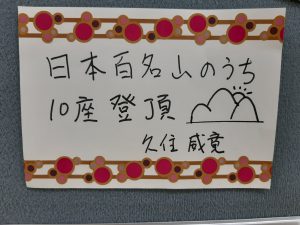 日本百名山のうち
10座登頂
久住 威寛